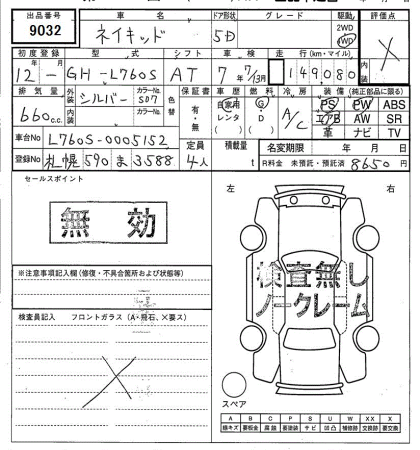 出品番号 車名 ドア形状 グレード 駆動 評価点
9032 ネイキッド 5D 2WD 4WD X
初度登録 型式 シフト 車検 走行(km・マイル) 内装
12年 GH-L760S AT 7年7/13月 149080
排気量 外装 シルバー カラーNo. S07 色替 保証書 車歴 燃料 冷房 装備(純正部品に限る)
660c.c. 内装 カラーNo. 有・無 自家用 レンタ G・D A/C PS PW ABS
エアB AW SR
革 ナビ TV
車台No L760S-0005152 定員 積載量 名変期限 年 月 日
登録No 札幌 590 ま 3588 4人 t R料金 未預託・預託済 8650円
セールスポイント
無効
左 右
検査無し
ノークレーム
※注意事項記入欄(修復・不具合箇所および状態等)
検査員記入 フロントガラス(A・飛石、X要ス)
X
スペア
A B C P S U W XX X
線キズ 要板金 腐蝕 要塗装 サビ 凹凸 補修跡 交換跡 要交換